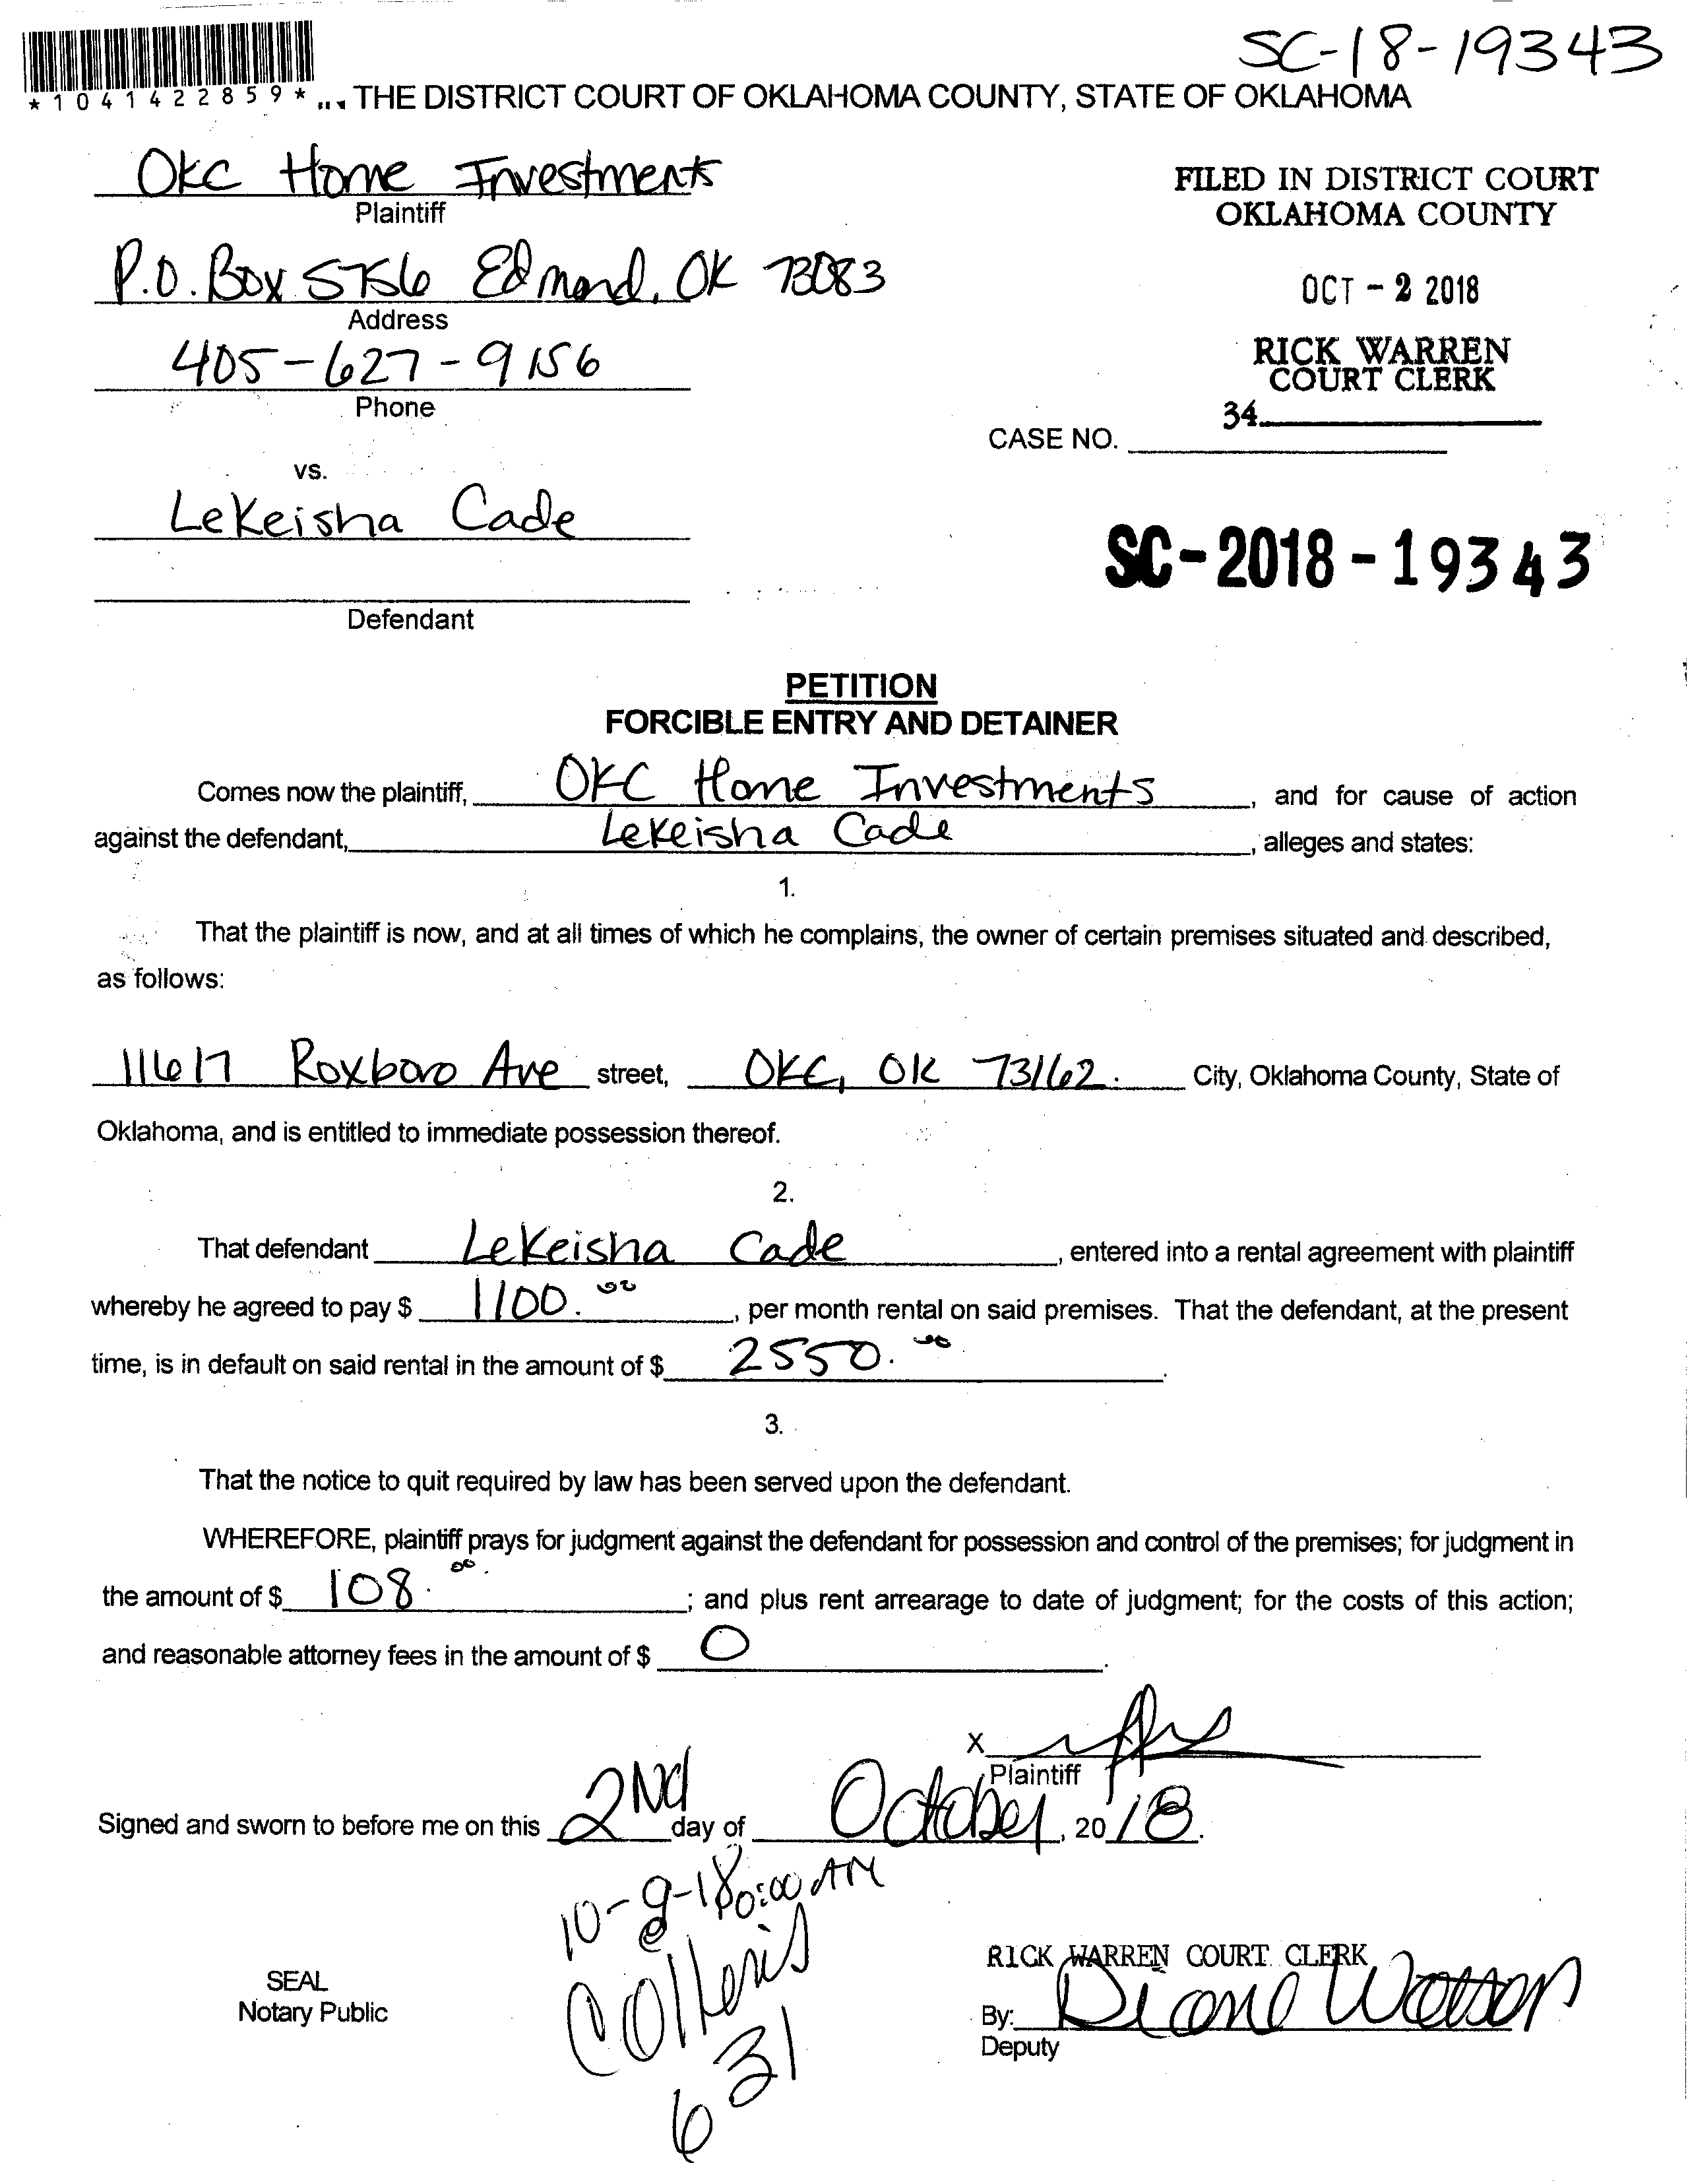 SC-18-19343
*1041422859*
THE DISTRICT COURT OF OKLAHOMA COUNTY, STATE OF OKLAHOMA
OKC Home Investments
Plaintiff
FILED IN DISTRICT COURT
OKLAHOMA COUNTY
P.O. Box 5756 Edmond, OK 73083
Address
OCT - 2 2018
405-627-9156
Phone
RICK WARREN
COURT CLERK
34
CASE NO.
vs.
LeKeisha Cade
Defendant
SC-2018-19343
PETITION
FORCIBLE ENTRY AND DETAINER
Comes now the plaintiff, OKC Home Investments, and for cause of action
against the defendant, LeKeisha Cade, alleges and states:
1.
That the plaintiff is now, and at all times of which he complains, the owner of certain premises situated and described,
as follows:
11617 Roxboro Ave street, OKC, OK 73162. City, Oklahoma County, State of
Oklahoma, and is entitled to immediate possession thereof.
2.
That defendant LeKeisha Cade, entered into a rental agreement with plaintiff
whereby he agreed to pay $ 1100.00, per month rental on said premises. That the defendant, at the present
time, is in default on said rental in the amount of $ 2550.00.
3.
That the notice to quit required by law has been served upon the defendant.
WHEREFORE, plaintiff prays for judgment against the defendant for possession and control of the premises; for judgment in
the amount of $ 108.00; and plus rent arrearage to date of judgment; for the costs of this action;
and reasonable attorney fees in the amount of $ 0.
X
Plaintiff
Signed and sworn to before me on this 2Nd day of October, 2018.
10-9-18
@ 10:00 AM
631
SEAL
Notary Public
RICK WARREN COURT CLERK
By: Diane Watson
Deputy